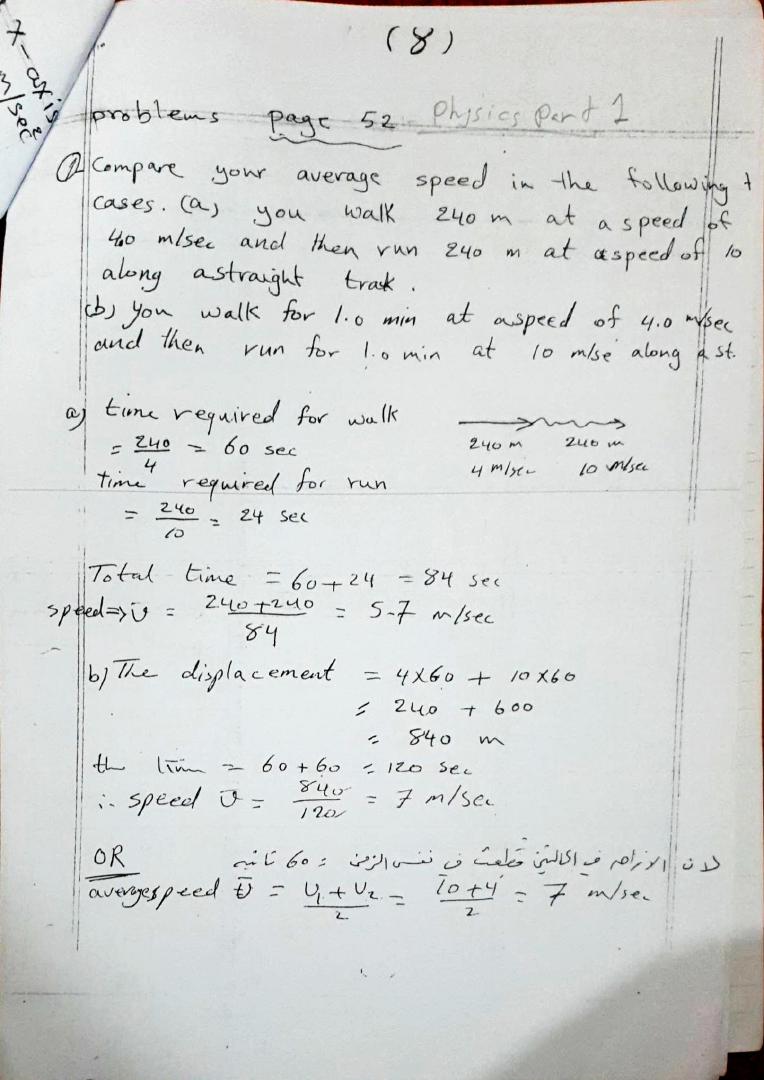 (8)
7-axis
m/sec²
problems page 52 Physics Part 1
① Compare your average speed in the following t
cases. (a) you walk 240 m at a speed of
4.0 m/sec and then run 240 m at a speed of 10
along a straight trak.
(b) you walk for 1.0 min at a speed of 4.0 m/sec
and then run for 1.0 min at 10 m/se along a st.
a) time required for walk
= 240/4 = 60 sec
240 m 240 m
4 m/sec 10 m/sec
time required for run
= 240/10 = 24 sec
Total time = 60+24 = 84 sec
speed ⇒ ῡ = 240+240/84 = 5.7 m/sec
b) The displacement = 4×60 + 10×60
= 240 + 600
= 840 m
the tim = 60+60 = 120 sec
∴ speed ῡ = 840/120 = 7 m/sec
OR لان الازاحه في الحالتين قطعت في نفس الزمن = 60 ثانيه
average speed ῡ = υ₁+υ₂/2 = 10+4/2 = 7 m/sec